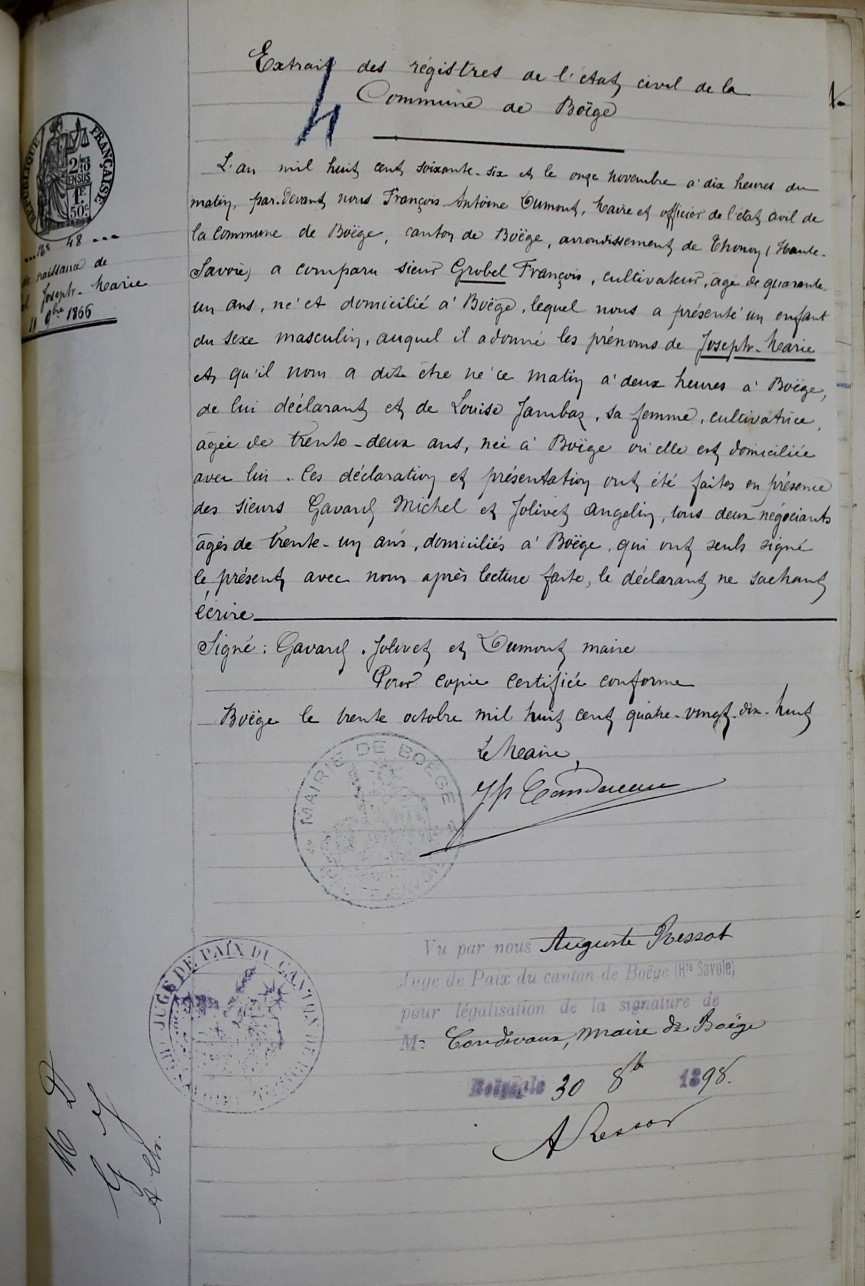 Extrait des régistres de l'état civil de la
Commune de Boëge
4
RÉPUBLIQUE FRANÇAISE
2/10
EN SUS
1F
50c
No 48
naissance de
Joseph-Marie
11 9bre 1866
L'an mil huit cent soixante-six et le onze novembre à dix heures du
matin, par-devant nous François Antoine Dumont, Maire et officier de l'état civil de
la Commune de Boëge, canton de Boëge, arrondissement de Thonon, (Haute-
Savoie) a comparu sieur Grobel François, cultivateur, âgé de quarante-
un ans, né et domicilié à Boëge, lequel nous a présenté un enfant
du sexe masculin, auquel il a donné les prénoms de Joseph-Marie
et qu'il nous a dit être né ce matin à deux heures à Boëge,
de lui déclarant et de Louise Jambaz, sa femme, cultivatrice,
âgée de trente-deux ans, née à Boëge où elle est domiciliée
avec lui. Ces déclaration et présentation ont été faites en présence
des sieurs Gavard Michel et Jolivet Angelin, tous deux négociants
âgés de trente-un ans, domiciliés à Boëge, qui ont seuls signé
le présent avec nous après lecture faite, le déclarant ne sachant
écrire
Signé: Gavard, Jolivet et Dumont maire
Pour copie certifiée conforme
Boëge le trente octobre mil huit cent quatre-vingt-dix-huit
Le Maire,
MAIRIE DE BOËGE
Vu par nous Auguste Ressot
Juge de Paix du canton de Boëge (Hte Savoie)
pour légalisation de la signature de
Mr Condevaux, Maire de Boëge
Boëge, le 30 8bre 1898.
A Ressot
JUGE DE PAIX DU CANTON DE BOËGE